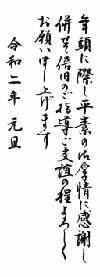 年頭に際し平素の御厚情に感謝し
併せて倍旧のご指導ご交誼の程よろしく
お願い申し上げます
令和二年 元旦